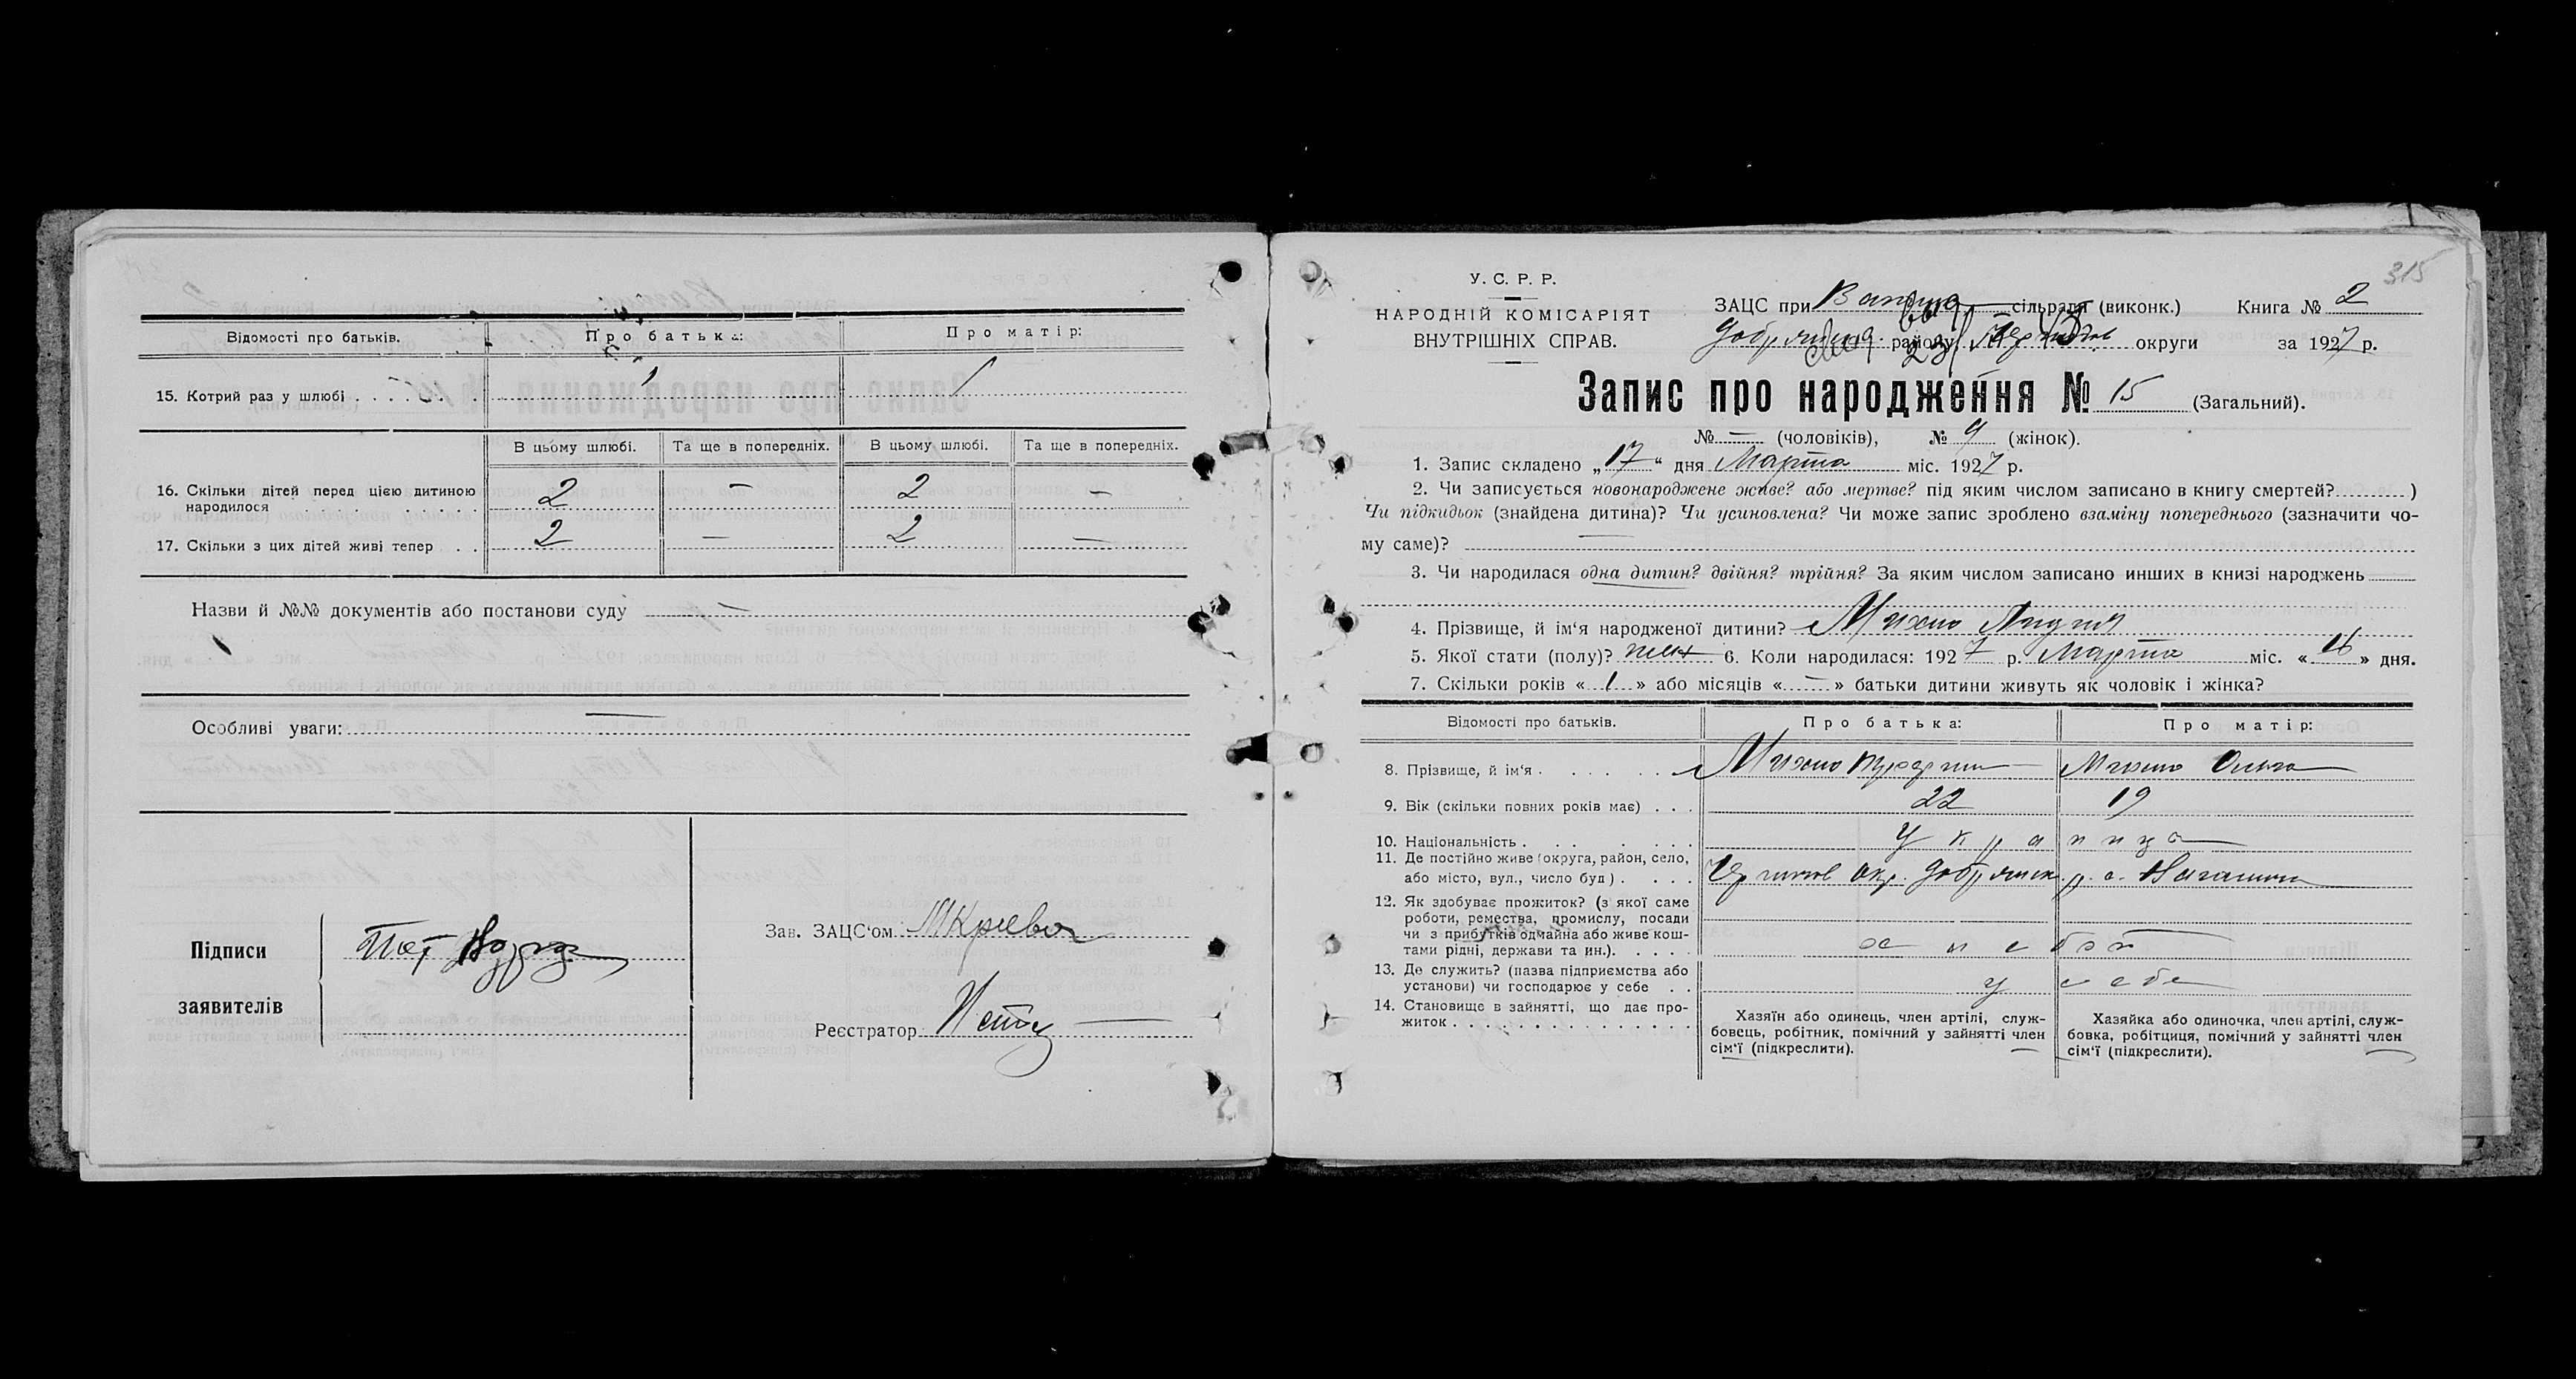 Відомості про батьків. Про батька: Про матір:
15. Котрий раз у шлюбі 1 1
В цьому шлюбі. Та ще в попередніх. В цьому шлюбі. Та ще в попередніх.
16. Скільки дітей перед цією дитиною
народилося 2 — 2 —
17. Скільки з цих дітей живі тепер 2 — 2 —
Назви й №№ документів або постанови суду —
Особливі уваги: —
Підписи
заявителів
Зав. ЗАЦС'ом
Реєстратор
315
У. С. Р. Р.
НАРОДНІЙ КОМІСАРІЯТ
ВНУТРІШНІХ СПРАВ.
ЗАЦС при сільраді (виконк.) Книга № 2
району, округи за 1927 р.
Запис про народження № 15 (Загальний).
№ — (чоловіків), № 9 (жінок).
1. Запис складено „17“ дня Марта міс. 1927 р.
2. Чи записується новонароджене живе? або мертве? під яким числом записано в книгу смертей? )
Чи підкидьок (знайдена дитина)? Чи усиновлена? Чи може запис зроблено взаміну попереднього (зазначити чо-
му саме)? —
3. Чи народилася одна дитин? двійня? трійня? За яким числом записано инших в книзі народжень
4. Прізвище, й ім'я народженої дитини? Михно Лидия
5. Якої стати (полу)? жин 6. Коли народилася: 1927 р. Марта міс. «16» дня.
7. Скільки років «1» або місяців «—» батьки дитини живуть як чоловік і жінка?
Відомості про батьків. Про батька: Про матір:
8. Прізвище, й ім'я Михно Михно Ольга
9. Вік (скільки повних років має) 22 19
10. Національність украинца
11. Де постійно живе (округа, район, село,
або місто, вул., число буд) окр. Добрянск р. с.
12. Як здобуває прожиток? (з якої саме
роботи, ремества, промислу, посади
чи з прибутків одмайна або живе кош-
тами рідні, держави та ин.).
13. Де служить? (назва підприємства або
установи) чи господарює у себе у себе
14. Становище в зайнятті, що дає про-
житок
Хазяїн або одинець, член артілі, служ-
бовець, робітник, помічний у зайнятті член
сім'ї (підкреслити).
Хазяйка або одиночка, член артілі, служ-
бовка, робітциця, помічний у зайнятті член
сім'ї (підкреслити).